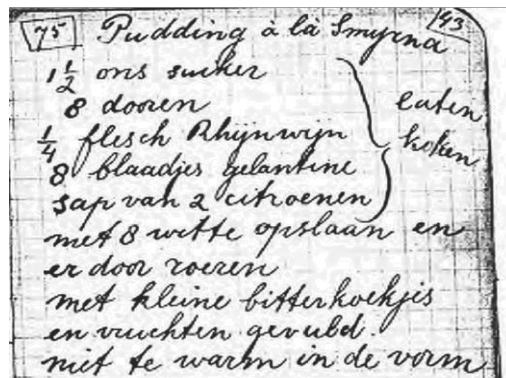 75 Pudding à là Smyrna 143
1 1/2 ons suiker
8 dooren
1/4 flesch Rhijnwijn
8 blaadjes gelantine
sap van 2 citroenen
laten koken
met 8 witte opslaan en
er door roeren
met kleine bitterkoekjes
en vruchten gevuld.
niet te warm in de vorm